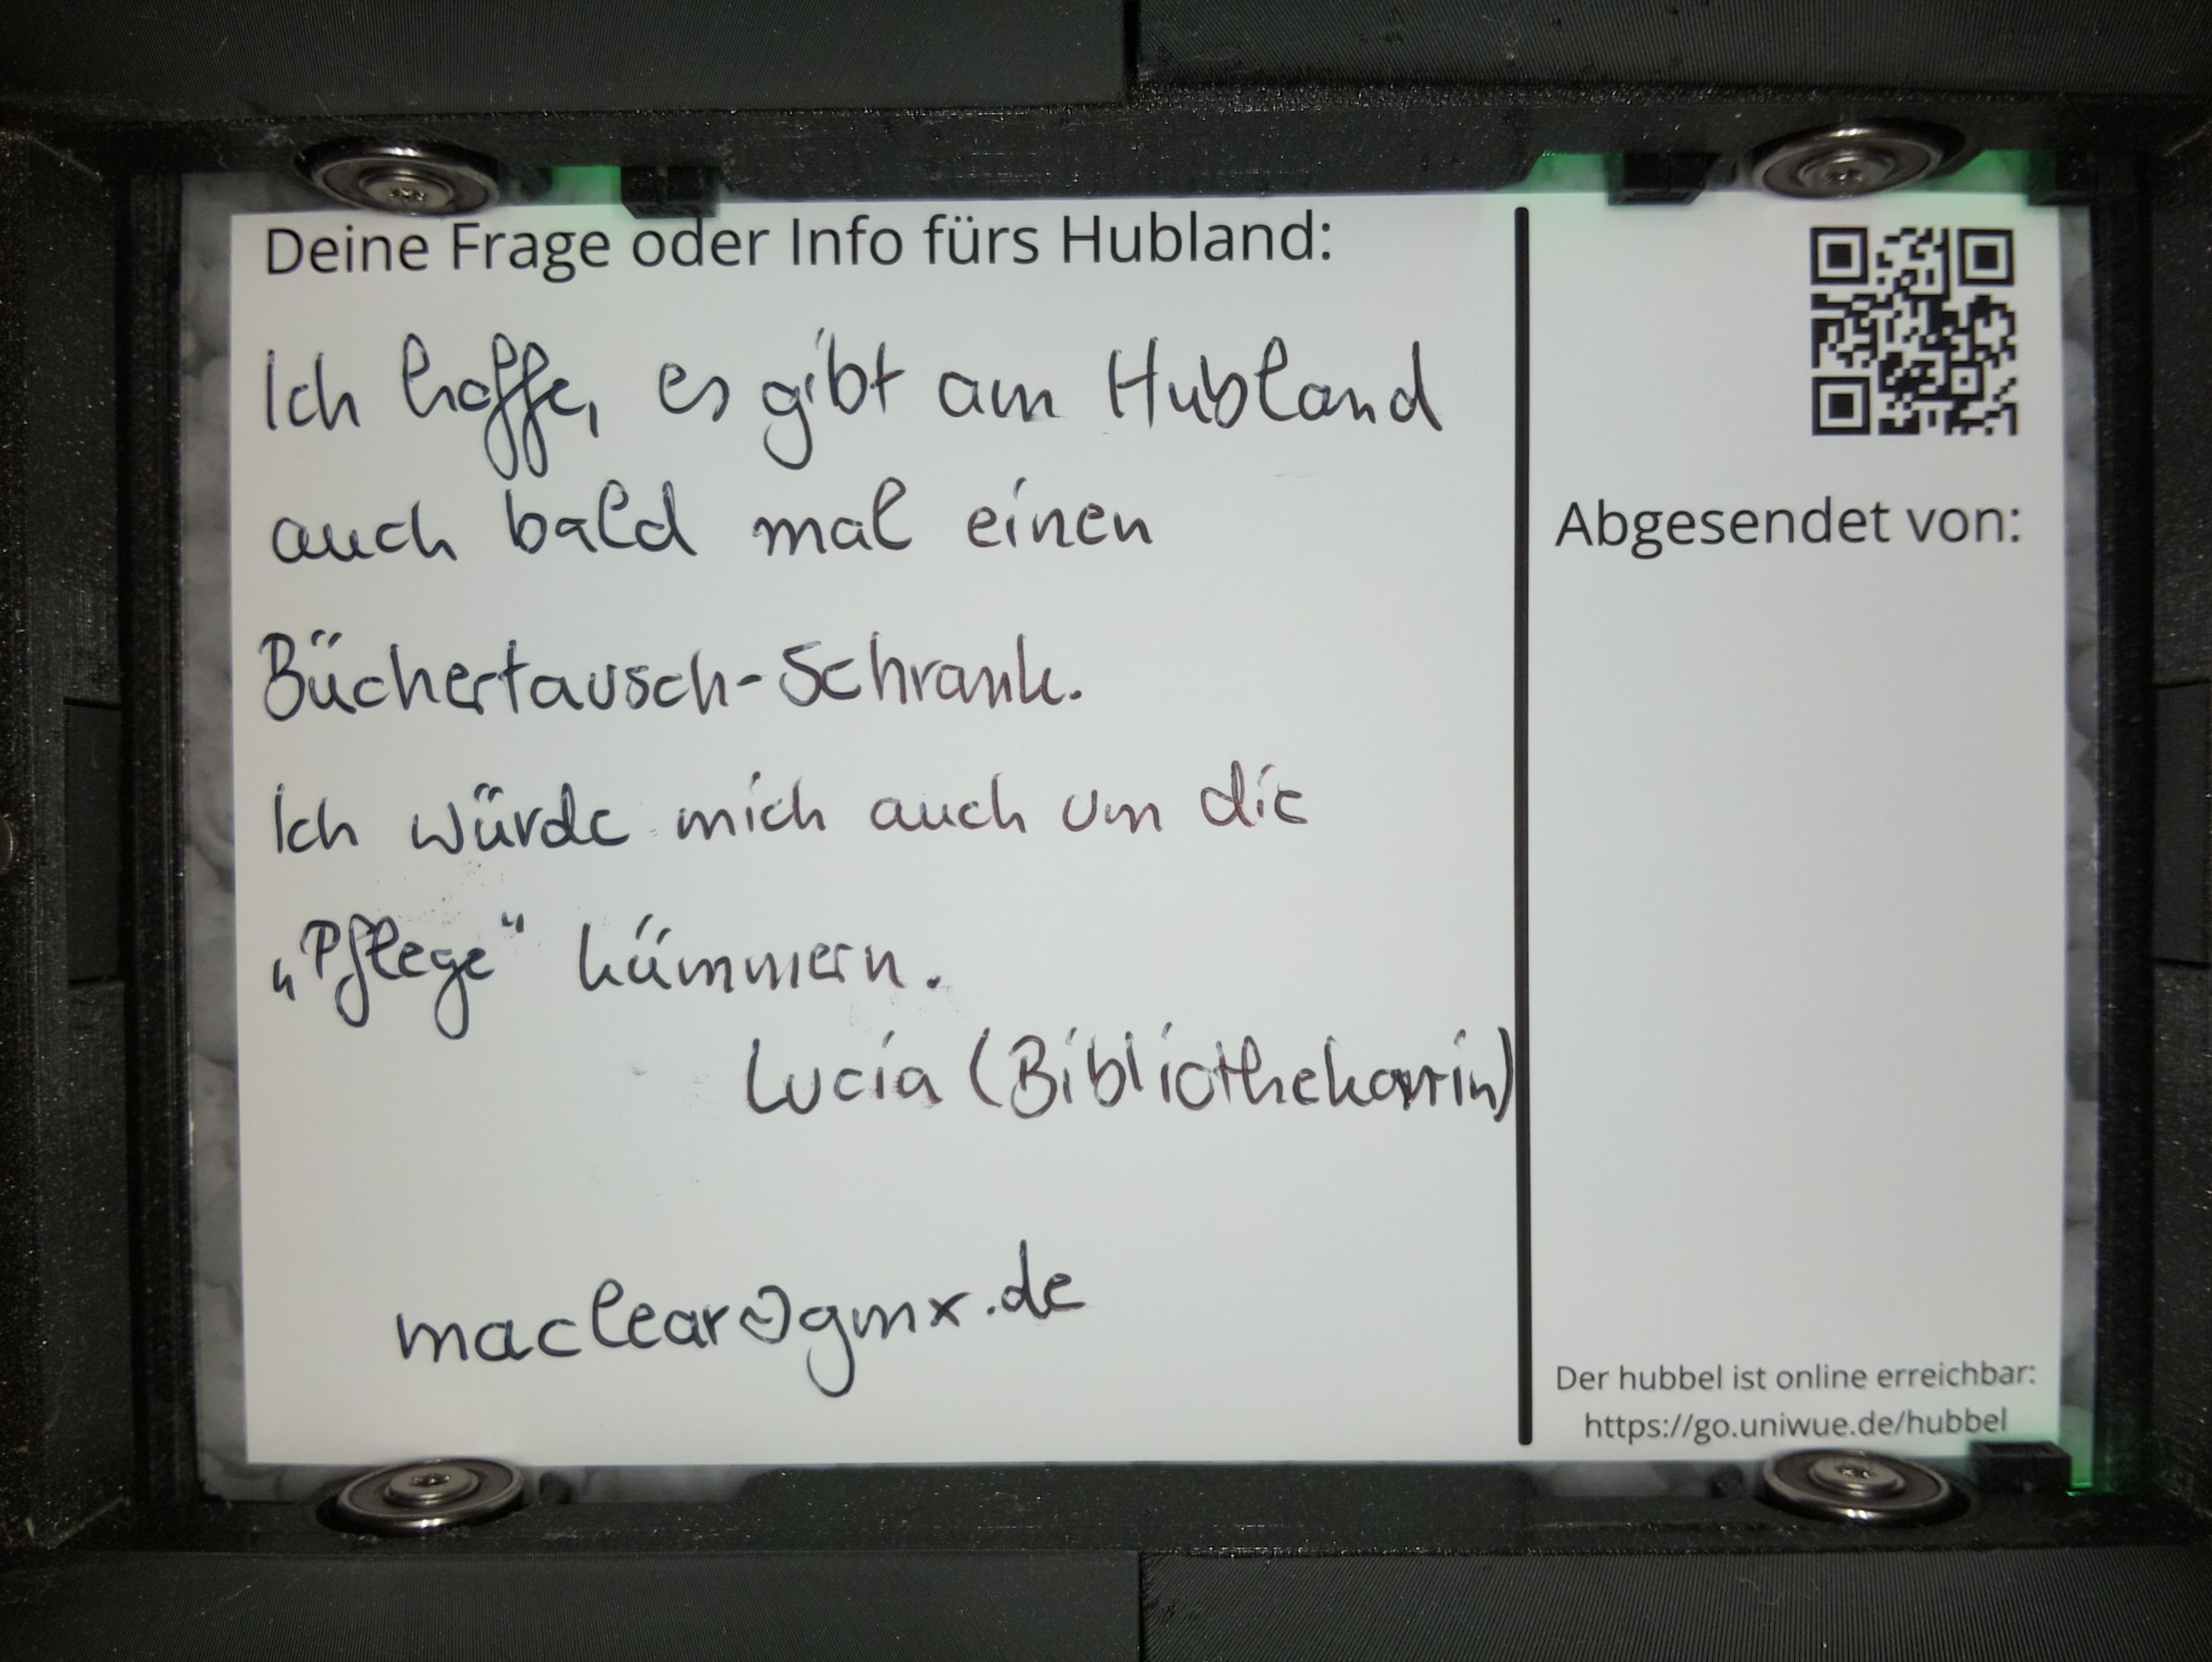 Deine Frage oder Info fürs Hubland:
Ich hoffe, es gibt am Hubland
auch bald mal einen
Büchertausch-Schrank.
Ich würde mich auch um die
„Pflege“ kümmern.
Lucia (Bibliothekarin)
maclear@gmx.de
Abgesendet von:
Der hubbel ist online erreichbar:
https://go.uniwue.de/hubbel